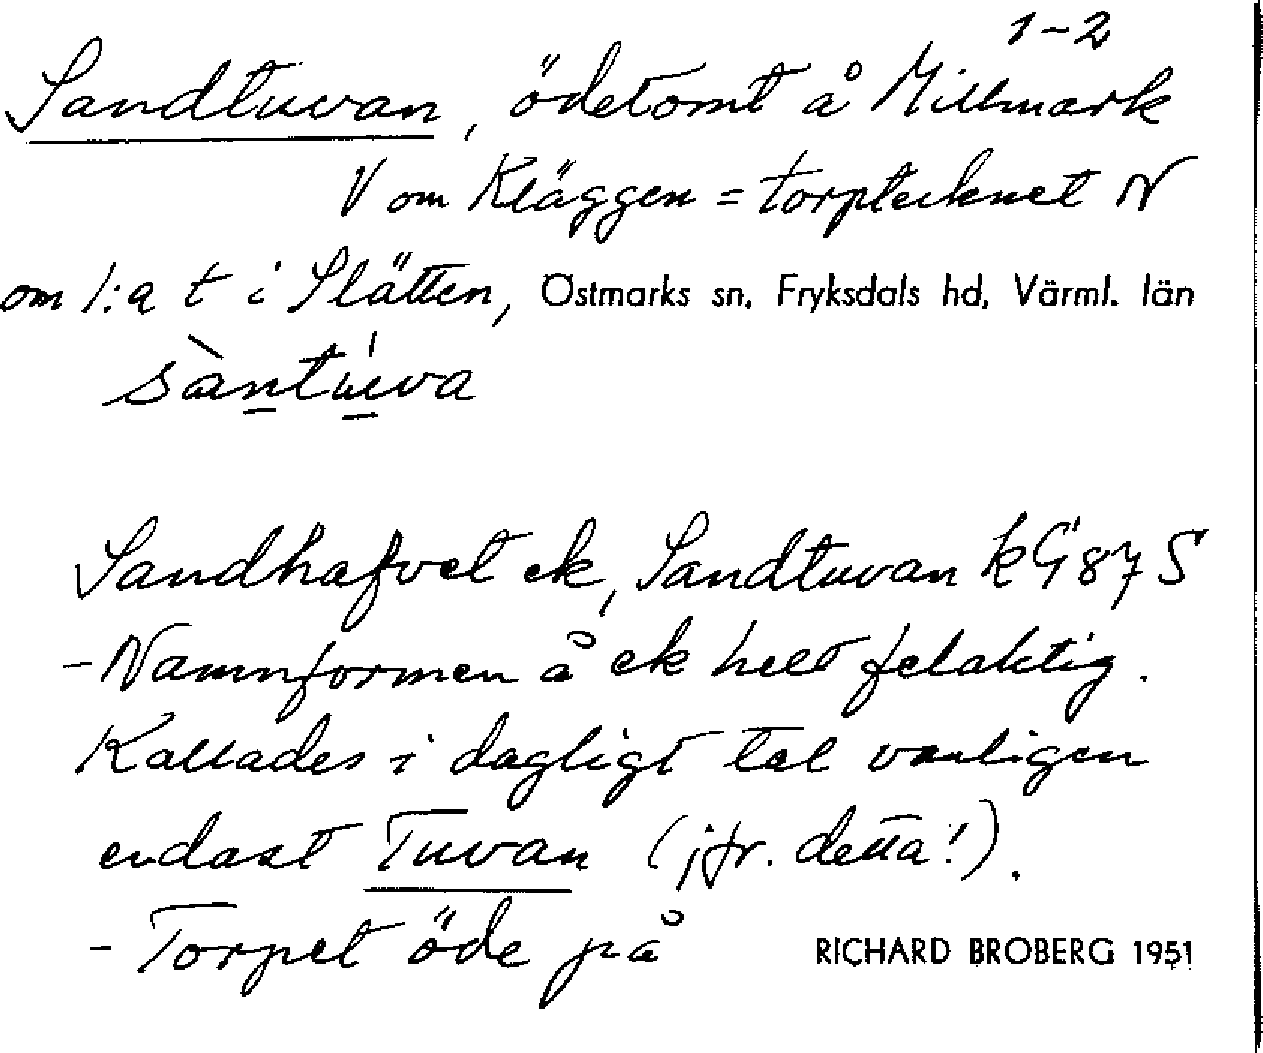 1-2
Sandtuvan, ödetomt å Millmark
V om Kläggen = torptecknet N
om 1:a t i Slätten, Östmarks sn, Fryksdals hd, Värml. län
sàntúva
Sandhafvet ek, Sandtuvan kG 87 S
- Namnformen å ek helt felaktig.
Kallades i dagligt tal vanligen
endast Tuvan (jfr. detta!).
- Torpet öde på
RICHARD BROBERG 1951